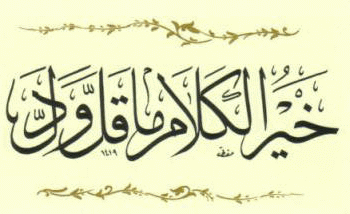 خَيْرُ الكَلَامِ مَا قَلَّ وَدَلَّ
١٤١٩